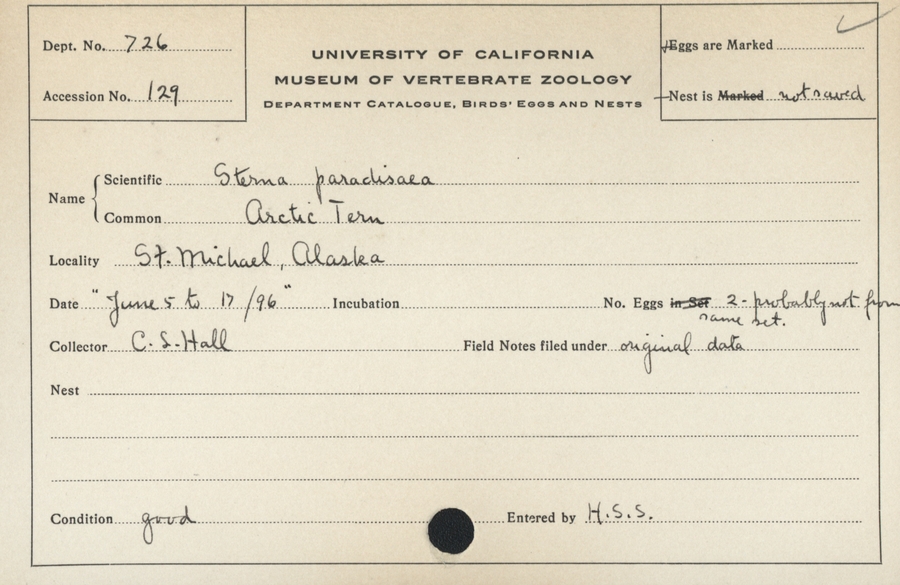 Dept. No. 726
Accession No. 129
UNIVERSITY OF CALIFORNIA
MUSEUM OF VERTEBRATE ZOOLOGY
DEPARTMENT CATALOGUE, BIRDS' EGGS AND NESTS
Eggs are Marked
Nest is Marked not saved
Name
Scientific Sterna paradisaea
Common Arctic Tern
Locality St. Michael, Alaska
Date "June 5 to 17/96" Incubation No. Eggs in Set 2 - probably not from
same set.
Collector C. S. Hall Field Notes filed under original data
Nest
Condition good Entered by H.S.S.